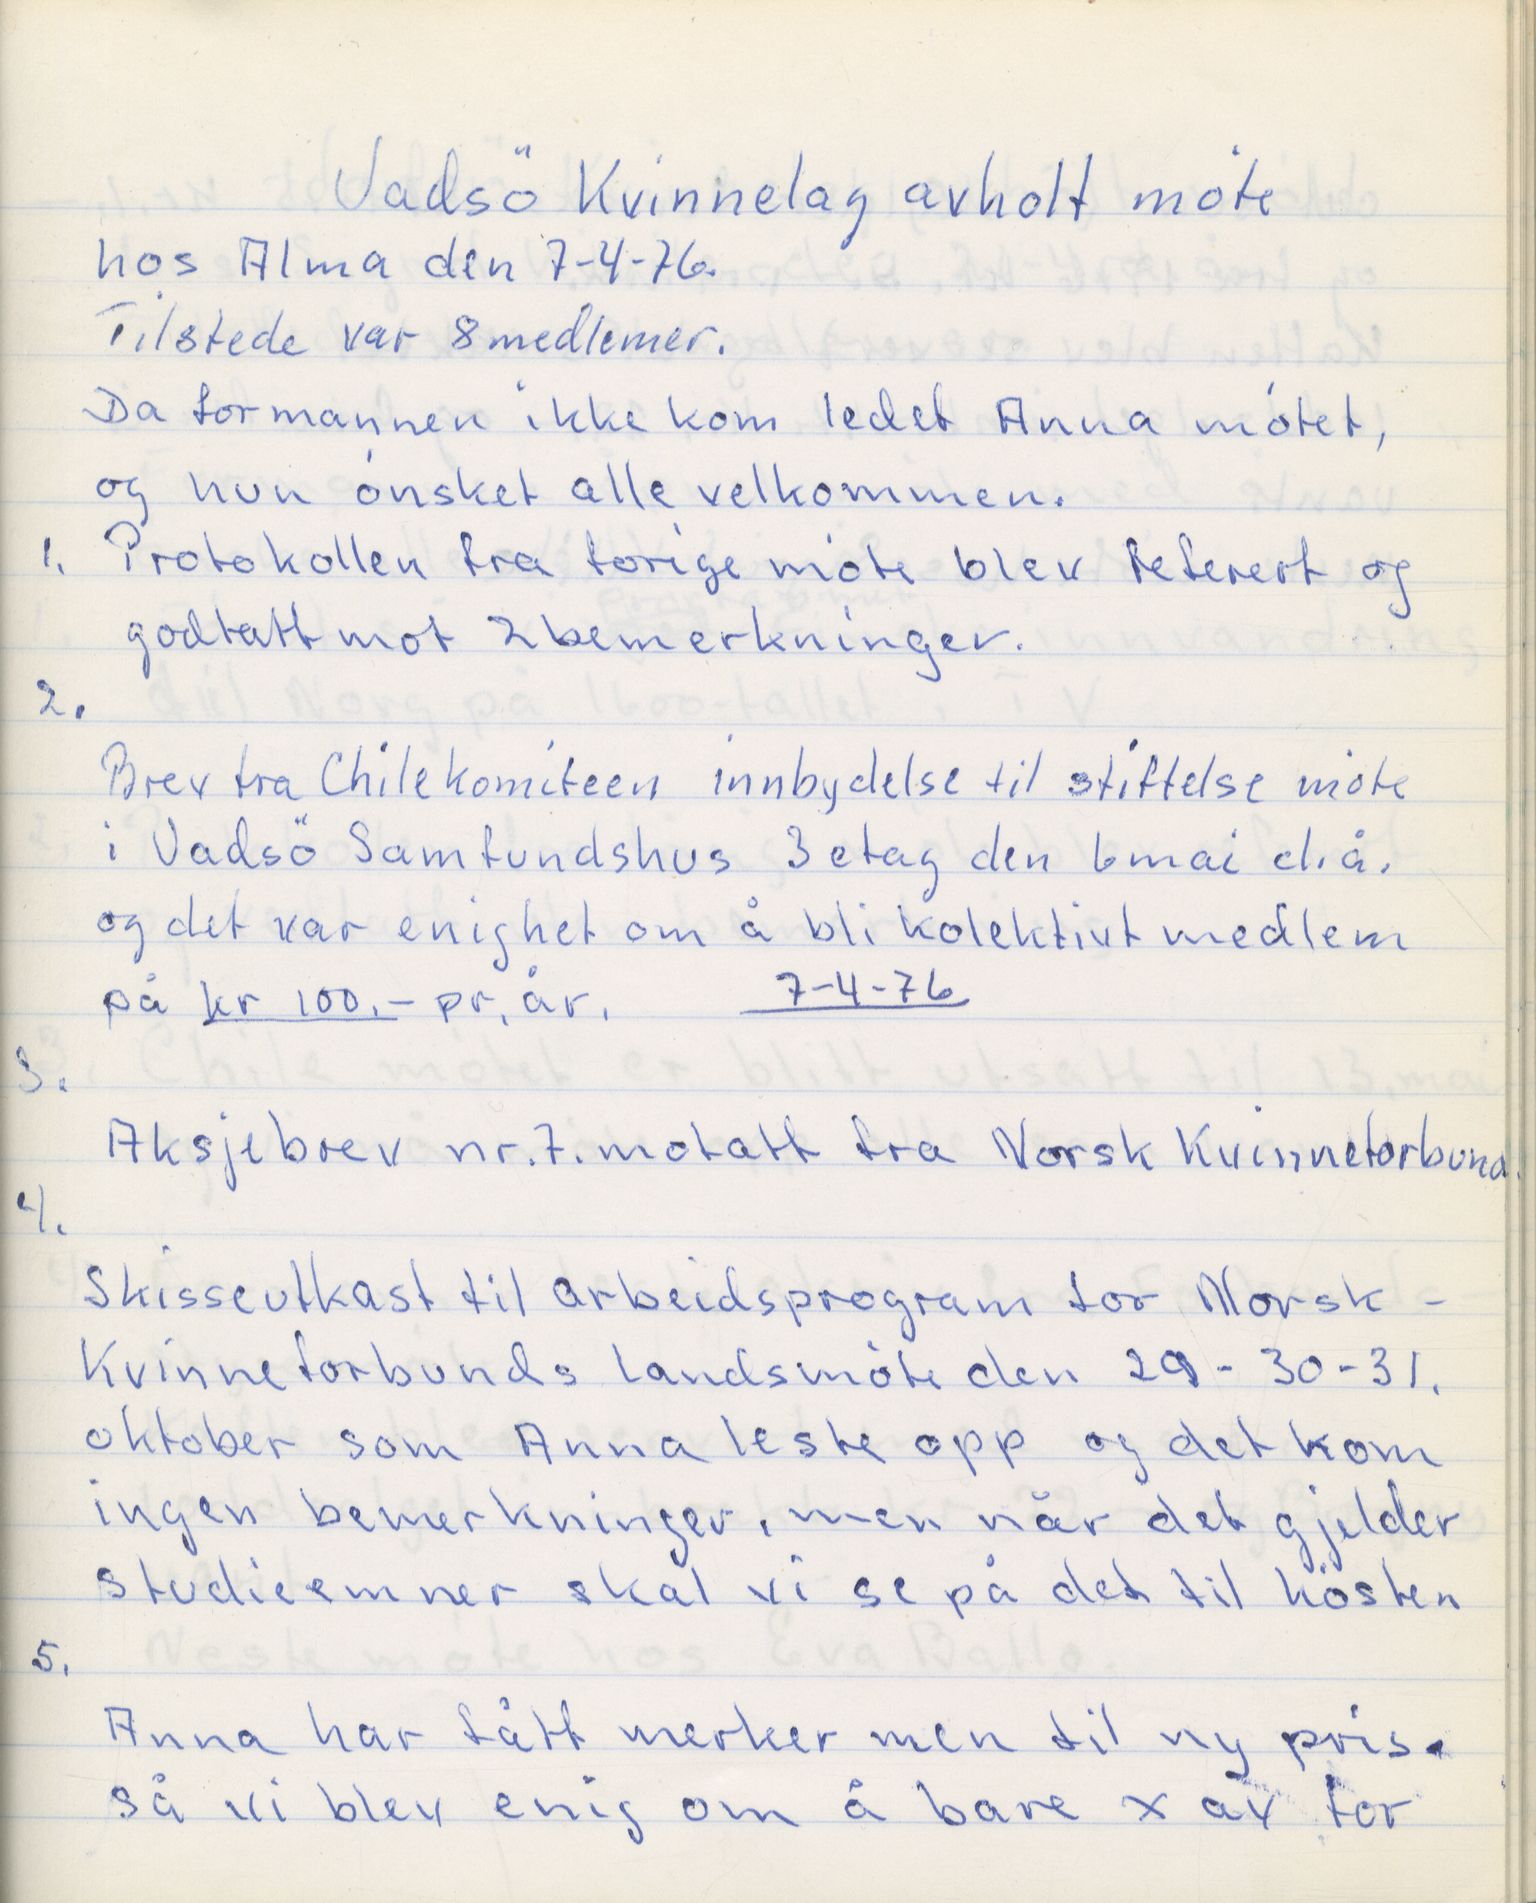 Vadsö Kvinnelag avholt móte
hos Alma den 7-4-76.
Tilstede var 8 medlemer.
Da formannen ikke kom ledet Anna mótet,
og hun ónsket alle velkommen.
1. Protokollen fra forige móte blev referert og
godtatt mot 2 bemerkninger.
2.
Brev fra Chilekomiteen innbydelse til stiftelse móte
i Vadsö Samfundshus 3 etag den 6 mai d.å.
og det var enighet om å bli kolektivt medlem
på kr 100.- pr, år. 7-4-76
3.
Aksjebrev nr. 7. motatt fra Norsk Kvinneforbund.
4.
Skisseutkast til arbeidsprogram for Norsk -
Kvinneforbunds landsmóte den 29 - 30 - 31.
oktober som Anna leste opp og det kom
ingen bemerkninger. men når det gjelder
studieemner skal vi se på det til hösten
5.
Anna har fått merker men til ny pris.
så vi blev enig om å bare x av for